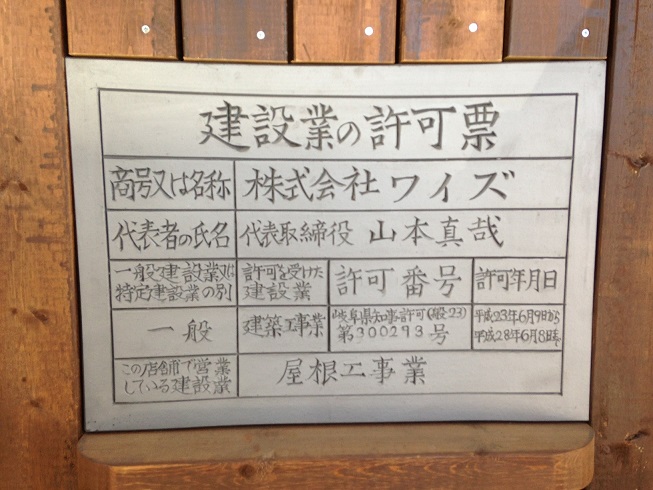 建設業の許可票
商号又は名称 株式会社ワイズ
代表者の氏名 代表取締役 山本真哉
一般建設業又は
特定建設業の別
許可を受けた
建設業
許可番号
許可年月日
一般
建築工事業
岐阜県知事許可(般-23)
第300293号
平成23年6月9日から
平成28年6月8日まで
この店舗で営業
している建設業
屋根工事業